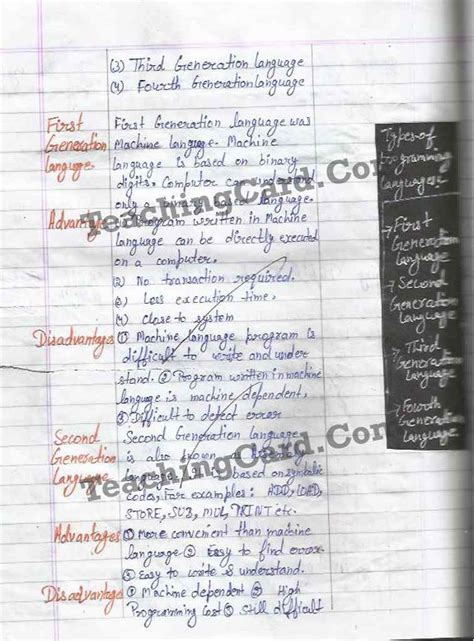 (3) Third Generation language
(4) Fourth Generation language
First
Generation
language
First Generation language was
Machine language. Machine
language is based on binary
digits. Computer can understand
only a binary based language.
Advantage
Program written in Machine
language can be directly executed
on a computer.
(2) No transaction required.
(3) Less execution time.
(4) Close to system
Disadvantage
(1) Machine language program is
difficult to write and under
stand. (2) Program written in machine
language is machine dependent,
(3) Difficult to detect error
Second
Generation
language
Second Generation language
is also known a
language based on symbolic
codes, For examples: ADD, LOAD,
STORE, SUB, MUL, PRINT etc.
Advantages
(1) More convenient than machine
language (2) Easy to find errors
(3) Easy to write is understand.
Disadvantage
(1) Machine dependent (2) High
Programming Cost (3) Still difficult
Types of
Programming
Languages
→ First
Generation
Language
→ Second
Generation
Language
→ Third
Generation
Language
→ Fourth
Generation
Language
TeachingCard.Com
TeachingCard.Com